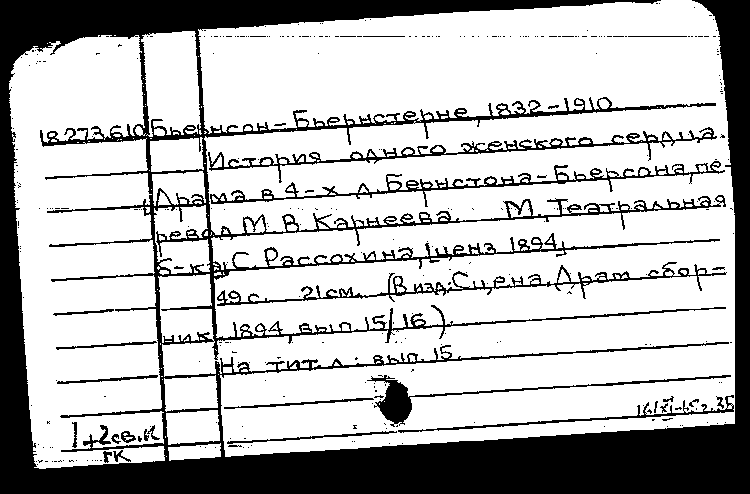 18.273.610 Бьернсон-Бьернстерне, 1832-1910
История одного женского сердца.
Драма в 4-х д. Бернстона-Бьерсона, пе-
ревод М.В. Карнеева. М., Театральная
б-ка, С. Рассохина, [ценз 1894].
49 с. 21 см. (В изд: Сцена. Драт сбор=
ник. 1894, вып. 15/16).
На тит. л: вып. 15.
1+2св.к
ГК